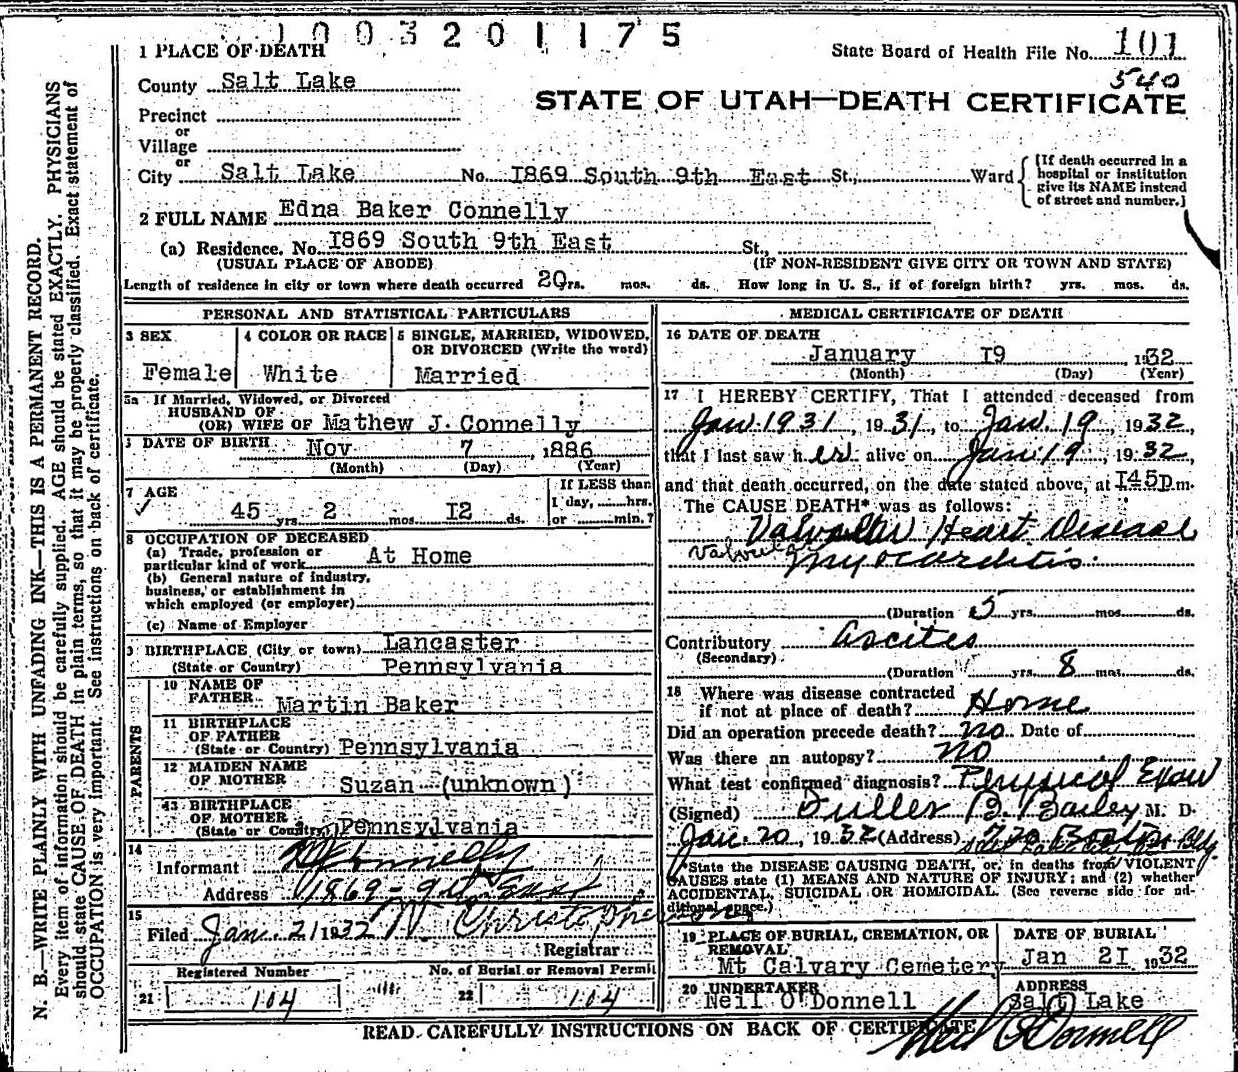 1003201175
1 PLACE OF DEATH
State Board of Health File No. 101
County Salt Lake
540
STATE OF UTAH—DEATH CERTIFICATE
Precinct
or
Village
or
City Salt Lake No. 1869 South 9th East St., Ward
{If death occurred in a hospital or institution give its NAME instead of street and number.}
2 FULL NAME Edna Baker Connelly
(a) Residence, No. 1869 South 9th East St.,
(USUAL PLACE OF ABODE) (IF NON-RESIDENT GIVE CITY OR TOWN AND STATE)
Length of residence in city or town where death occurred 20 yrs. mos. ds. How long in U. S., if of foreign birth? yrs. mos. ds.
PERSONAL AND STATISTICAL PARTICULARS
3 SEX
Female
4 COLOR OR RACE
White
5 SINGLE, MARRIED, WIDOWED,
OR DIVORCED (Write the word)
Married
5a If Married, Widowed, or Divorced
HUSBAND OF
(OR) WIFE OF Mathew J. Connelly
DATE OF BIRTH Nov 7, 1886
(Month) (Day) (Year)
7 AGE
45 yrs. 2 mos. 12 ds.
If LESS than
1 day, hrs.
or min.?
8 OCCUPATION OF DECEASED
(a) Trade, profession or
particular kind of work At Home
(b) General nature of industry,
business, or establishment in
which employed (or employer)
(c) Name of Employer
9 BIRTHPLACE (City or town) Lancaster
(State or Country) Pennsylvania
PARENTS
10 NAME OF
FATHER Martin Baker
11 BIRTHPLACE
OF FATHER
(State or Country) Pennsylvania
12 MAIDEN NAME
OF MOTHER Suzan (unknown)
13 BIRTHPLACE
OF MOTHER
(State or Country) Pennsylvania
14
Informant Connelly
Address 1869 - 9th East
15
Filed Jan. 21 1932 W. Christopherson
Registrar
Registered Number
21 104
No. of Burial or Removal Permit
22 104
MEDICAL CERTIFICATE OF DEATH
16 DATE OF DEATH
January 19 1932
(Month) (Day) (Year)
17 I HEREBY CERTIFY, That I attended deceased from
Jan 1931, 1931, to Jan. 19, 1932,
that I last saw her alive on Jan 19, 1932,
and that death occurred, on the date stated above, at 145p m.
The CAUSE DEATH* was as follows:
Valvular Heart Disease
Valvular
Myocarditis.
(Duration 5 yrs. mos. ds.
Contributory Ascites
(Secondary)
(Duration yrs. 8 mos. ds.
18 Where was disease contracted
if not at place of death? Home
Did an operation precede death? no Date of
Was there an autopsy? no
What test confirmed diagnosis? Physical Exam
(Signed) Fuller B. Bailey M. D.
Jan. 20, 1932 (Address) 720 Boston Bldg.
*State the DISEASE CAUSING DEATH, or, in deaths from VIOLENT
CAUSES state (1) MEANS AND NATURE OF INJURY; and (2) whether
ACCIDENTAL, SUICIDAL OR HOMICIDAL. (See reverse side for ad-
ditional space.)
19 PLACE OF BURIAL, CREMATION, OR
REMOVAL
Mt Calvary Cemetery
DATE OF BURIAL
Jan 21 1932
20 UNDERTAKER
Neil O'Donnell
ADDRESS
Salt Lake
READ CAREFULLY INSTRUCTIONS ON BACK OF CERTIFICATE
Neil O'Donnell
N. B.—WRITE PLAINLY WITH UNFADING INK—THIS IS A PERMANENT RECORD.
Every item of information should be carefully supplied. AGE should be stated EXACTLY. PHYSICIANS
should state CAUSE OF DEATH in plain terms, so that it may be properly classified. Exact statement of
OCCUPATION is very important. See instructions on back of certificate.